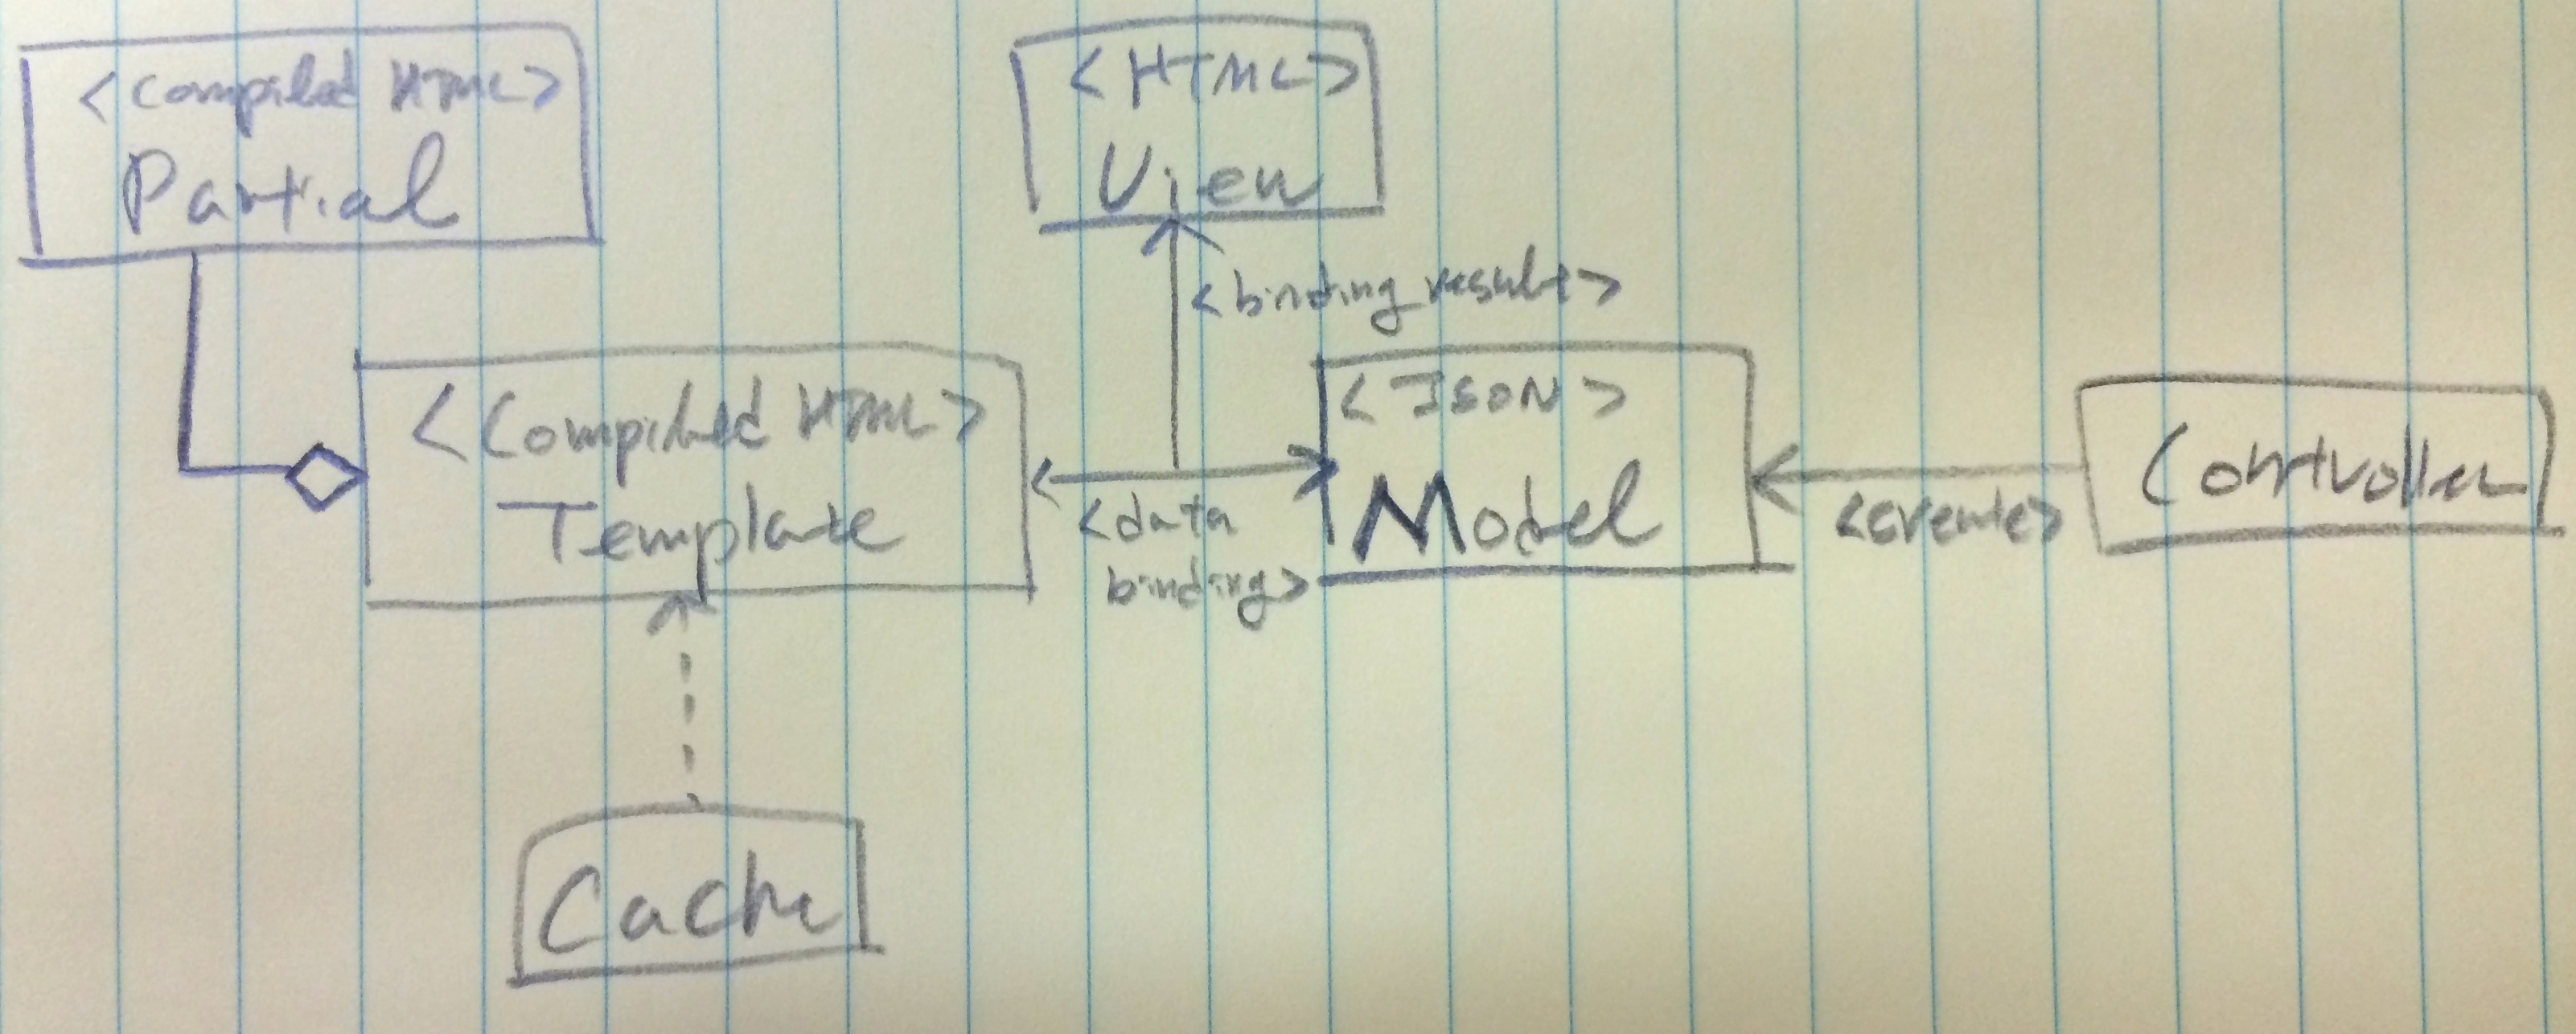 <Compiled HTML>
Partial
<HTML>
View
<binding result>
<Compiled HTML>
Template
<data
binding>
<JSON>
Model
<create>
Controller
Cache